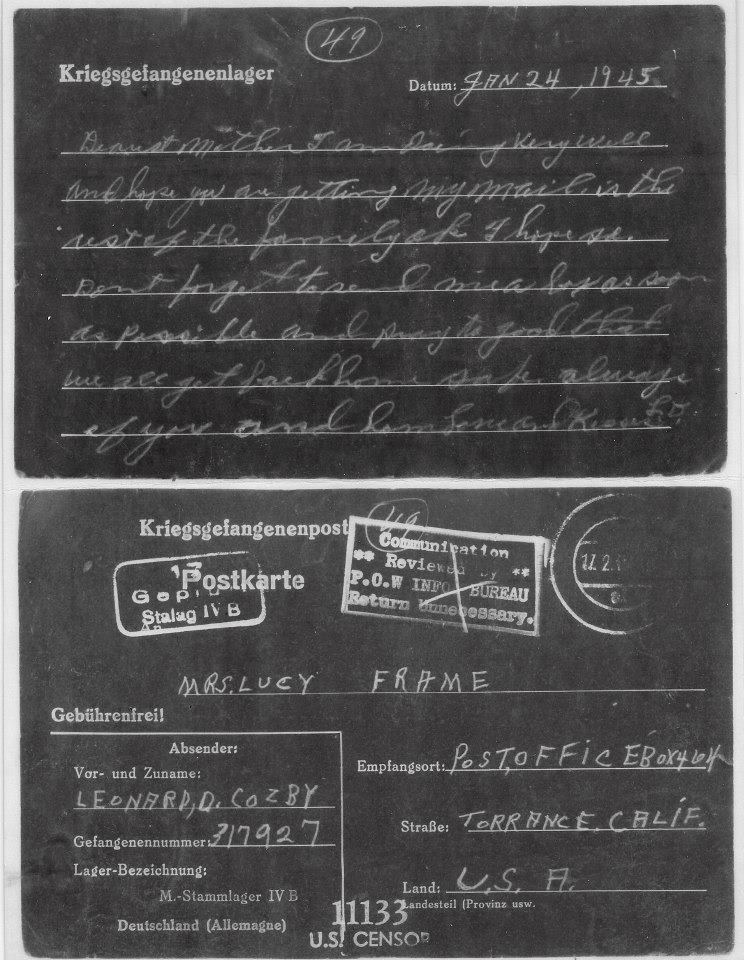 49
Kriegsgefangenenlager
Datum: JAN 24, 1945
Dearest Mother I am Doing Very well
And hope you are getting My Mail is the
rest of the family ok I hope so.
Dont forget to send me a box as soon
as possible and pray to good that
we all get back home safe always
of you and love and Kisses
Kriegsgefangenenpost
49
Communication
** Reviewed by **
P.O.W INFO. BUREAU
Return Unnecessary.
17.2.
13
Postkarte
Geprüft
Stalag IV B
An
MRS. LUCY FRAME
Gebührenfrei!
Absender:
Vor- und Zuname:
LEONARD, D. COZBY
Gefangenennummer: 317927
Lager-Bezeichnung:
M.-Stammlager IV B
Deutschland (Allemagne)
Empfangsort: POST, OFFICE BOX 464
Straße: TORRANCE. CALIF.
Land: U.S. A.
Landesteil (Provinz usw.
11133
U.S. CENSOR